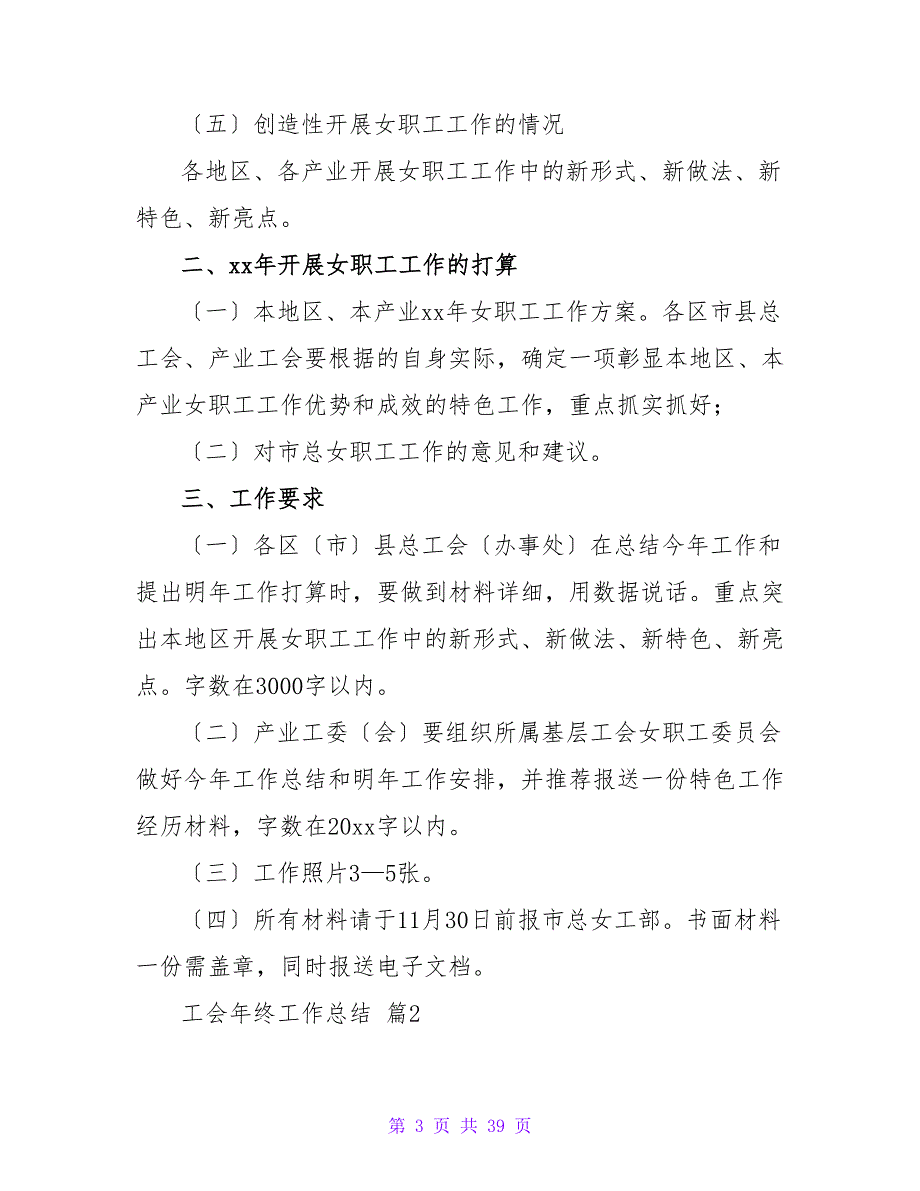 〔五〕创造性开展女职工工作的情况
各地区、各产业开展女职工工作中的新形式、新做法、新
特色、新亮点。
二、xx年开展女职工工作的打算
〔一〕本地区、本产业xx年女职工工作方案。各区市县总
工会、产业工会要根据的自身实际，确定一项彰显本地区、本
产业女职工工作优势和成效的特色工作，重点抓实抓好；
〔二〕对市总女职工工作的意见和建议。
三、工作要求
〔一〕各区〔市〕县总工会〔办事处〕在总结今年工作和
提出明年工作打算时，要做到材料详细，用数据说话。重点突
出本地区开展女职工工作中的新形式、新做法、新特色、新亮
点。字数在3000字以内。
〔二〕产业工委〔会〕要组织所属基层工会女职工委员会
做好今年工作总结和明年工作安排，并推荐报送一份特色工作
经历材料，字数在20xx字以内。
〔三〕工作照片3—5张。
〔四〕所有材料请于11月30日前报市总女工部。书面材料
一份需盖章，同时报送电子文档。
工会年终工作总结 篇2
第 3 页 共 39 页